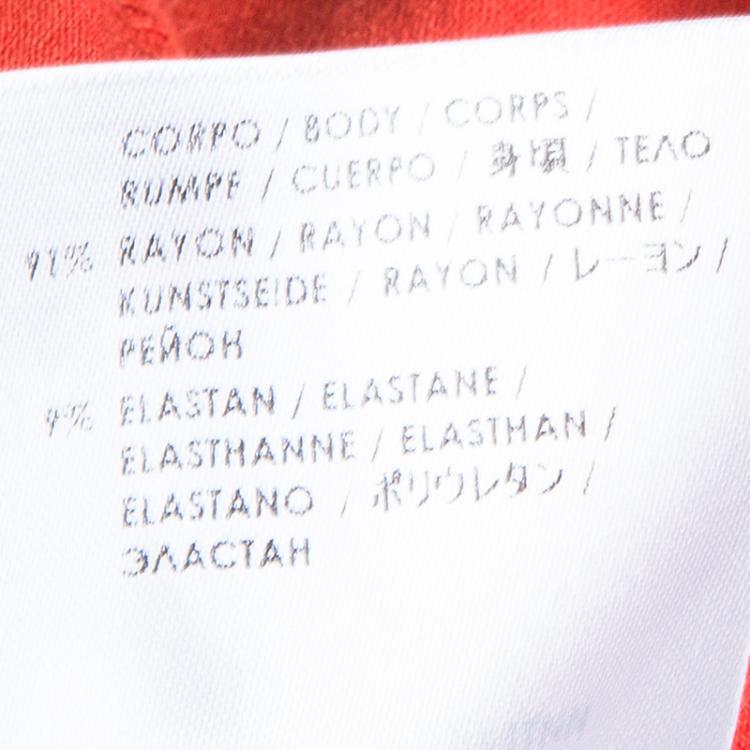 CORPO / BODY / CORPS /
RUMPF / CUERPO / 身頃 / ТЕЛО
91% RAYON / RAYON / RAYONNE /
KUNSTSEIDE / RAYON / レーヨン /
РЕЙОН
9% ELASTAN / ELASTANE /
ELASTHANNE / ELASTHAN /
ELASTANO / ポリウレタン /
ЭЛАСТАН